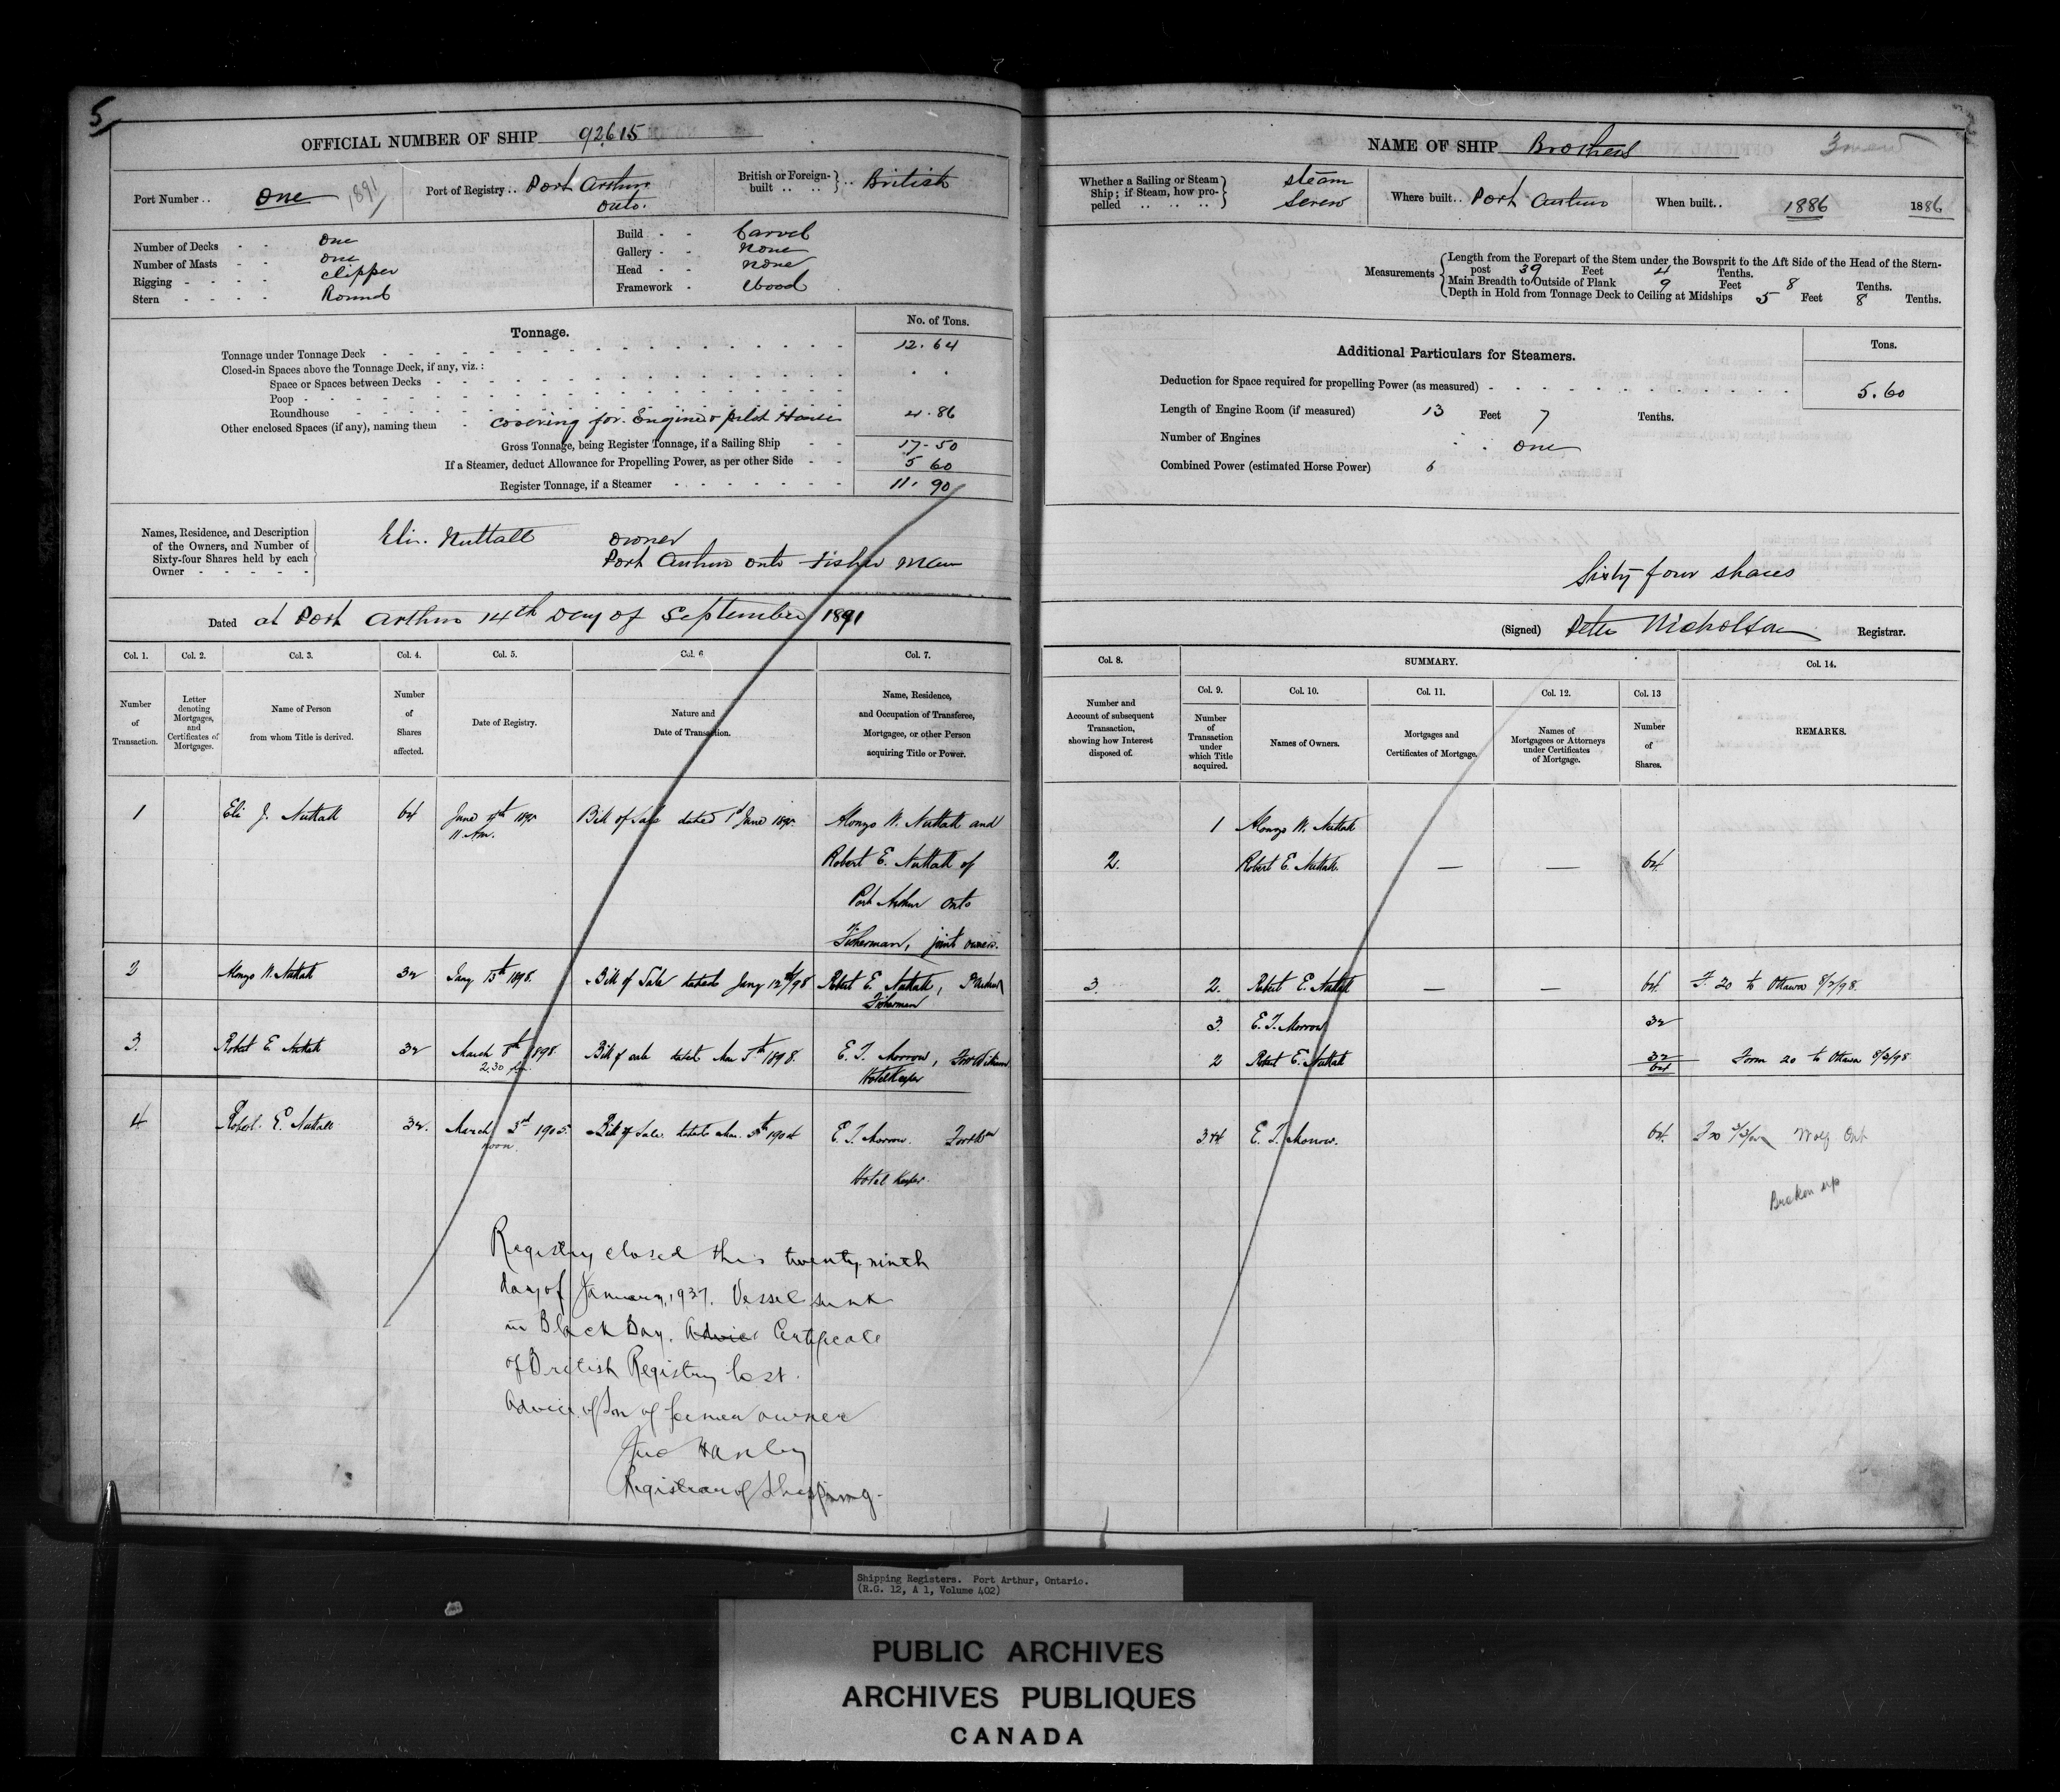 5
OFFICIAL NUMBER OF SHIP 92615
Port Number .. One 1891
Port of Registry .. Port Arthur Onto.
British or Foreign-built .. .. } .. British
Number of Decks - - One
Number of Masts - - One
Rigging - - - - Clipper
Stern - - - - Round
Build - - Carvel
Gallery - - None
Head - - None
Framework - Wood
Tonnage.
No. of Tons.
Tonnage under Tonnage Deck 12.64
Closed-in Spaces above the Tonnage Deck, if any, viz.:
Space or Spaces between Decks
Poop
Roundhouse
Other enclosed Spaces (if any), naming them - covering for Engine & pilot House 4.86
Gross Tonnage, being Register Tonnage, if a Sailing Ship 17-50
If a Steamer, deduct Allowance for Propelling Power, as per other Side 5 60
Register Tonnage, if a Steamer 11.90
Names, Residence, and Description
of the Owners, and Number of
Sixty-four Shares held by each
Owner
Eli. Nuttall owner
Port Arthur Onto Fisher Man
Dated at Port Arthur 14th Day of September 1891
Col. 1. Col. 2. Col. 3. Col. 4. Col. 5. Col. 6 Col. 7.
Number of Transaction.
Letter denoting Mortgages, and Certificates of Mortgages.
Name of Person from whom Title is derived.
Number of Shares affected.
Date of Registry.
Nature and Date of Transaction.
Name, Residence, and Occupation of Transferee, Mortgagee, or other Person acquiring Title or Power.
1 Eli J. Nuttall 64 June 4th 11 Am. Bill of Sale dated 1st June Alonzo W. Nuttall and
Robert E. Nuttall of
Port Arthur Onto
Fisherman, joint owners.
2 Alonzo W. Nuttall 32 Jany 13th 1898. Bill of Sale dated Jany 12th/98 Robert E. Nuttall,
Fisherman
3. Robert E. Nuttall 32 March 8th 1898. 2.30 pm. Bill of sale dated Mar 5th 1898. E. T. Morrow, Fort William
Hotel Keeper
4 Robert E. Nuttall 32. March 3rd 1905. noon. Bill of Sale dated Mar. 5th 1904 E. T. Morrow.
Hotel Keeper.
Registry closed this twenty ninth
day of January, 1937. Vessel sunk
in Black Bay. Advice Certificate
of British Registry lost.
Advice of Son of former owner
Jno Hanley
Registrar of Shipping.
NAME OF SHIP Brothers
Whether a Sailing or Steam Ship; if Steam, how propelled .. .. .. } Steam Screw
Where built .. Port Arthur
When built .. 1886 1886
Measurements
Length from the Forepart of the Stem under the Bowsprit to the Aft Side of the Head of the Stern-
post 39 Feet 4 Tenths.
Main Breadth to Outside of Plank 9 Feet 8 Tenths.
Depth in Hold from Tonnage Deck to Ceiling at Midships 5 Feet 8 Tenths.
Additional Particulars for Steamers.
Tons.
Deduction for Space required for propelling Power (as measured) 5.60
Length of Engine Room (if measured) 13 Feet 7 Tenths.
Number of Engines One
Combined Power (estimated Horse Power) 6
Sixty four shares
(Signed) Peter Nicholson Registrar.
Col. 8. SUMMARY. Col. 14.
Col. 9. Col. 10. Col. 11. Col. 12. Col. 13
Number and Account of subsequent Transaction, showing how Interest disposed of.
Number of Transaction under which Title acquired.
Names of Owners.
Mortgages and Certificates of Mortgage.
Names of Mortgagees or Attorneys under Certificates of Mortgage.
Number of Shares.
REMARKS.
1 Alonzo W. Nuttall
2. Robert E. Nuttall. — — 64
3. 2. Robert E. Nuttall — — 64. F. 20 to Ottawa 8/2/98.
3. E. T. Morrow 32
2 Robert E. Nuttall 32 64 Form 20 to Ottawa 8/3/98
3&4 E. T. Morrow. 64
Broken up
Shipping Registers. Port Arthur, Ontario.
(R.G. 12, A 1, Volume 402)
PUBLIC ARCHIVES
ARCHIVES PUBLIQUES
CANADA